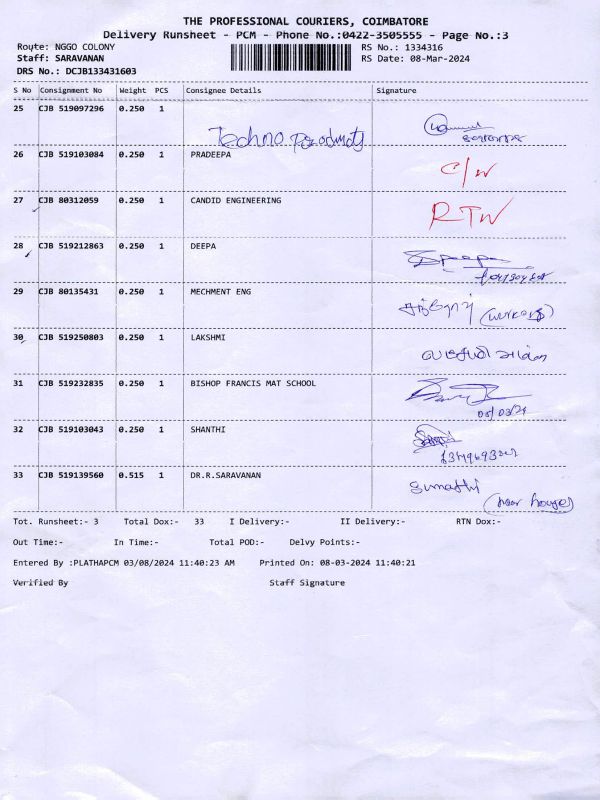 THE PROFESSIONAL COURIERS, COIMBATORE
Delivery Runsheet - PCM - Phone No.:0422-3505555 - Page No.:3
Route: NGGO COLONY RS No.: 1334316
Staff: SARAVANAN RS Date: 08-Mar-2024
DRS No.: DCJB133431603
S No Consignment No Weight PCS Consignee Details Signature
25 CJB 519097296 0.250 1
Techno Products
26 CJB 519103084 0.250 1 PRADEEPA C/W
27 CJB 80312059 0.250 1 CANDID ENGINEERING RTW
28 CJB 519212863 0.250 1 DEEPA Deepa
29 CJB 80135431 0.250 1 MECHMENT ENG
30 CJB 519250803 0.250 1 LAKSHMI
31 CJB 519232835 0.250 1 BISHOP FRANCIS MAT SCHOOL
32 CJB 519103043 0.250 1 SHANTHI
33 CJB 519139560 0.515 1 DR.R.SARAVANAN Sumathi
(near house)
Tot. Runsheet:- 3 Total Dox:- 33 I Delivery:- II Delivery:- RTN Dox:-
Out Time:- In Time:- Total POD:- Delvy Points:-
Entered By :PLATHAPCM 03/08/2024 11:40:23 AM Printed On: 08-03-2024 11:40:21
Verified By Staff Signature